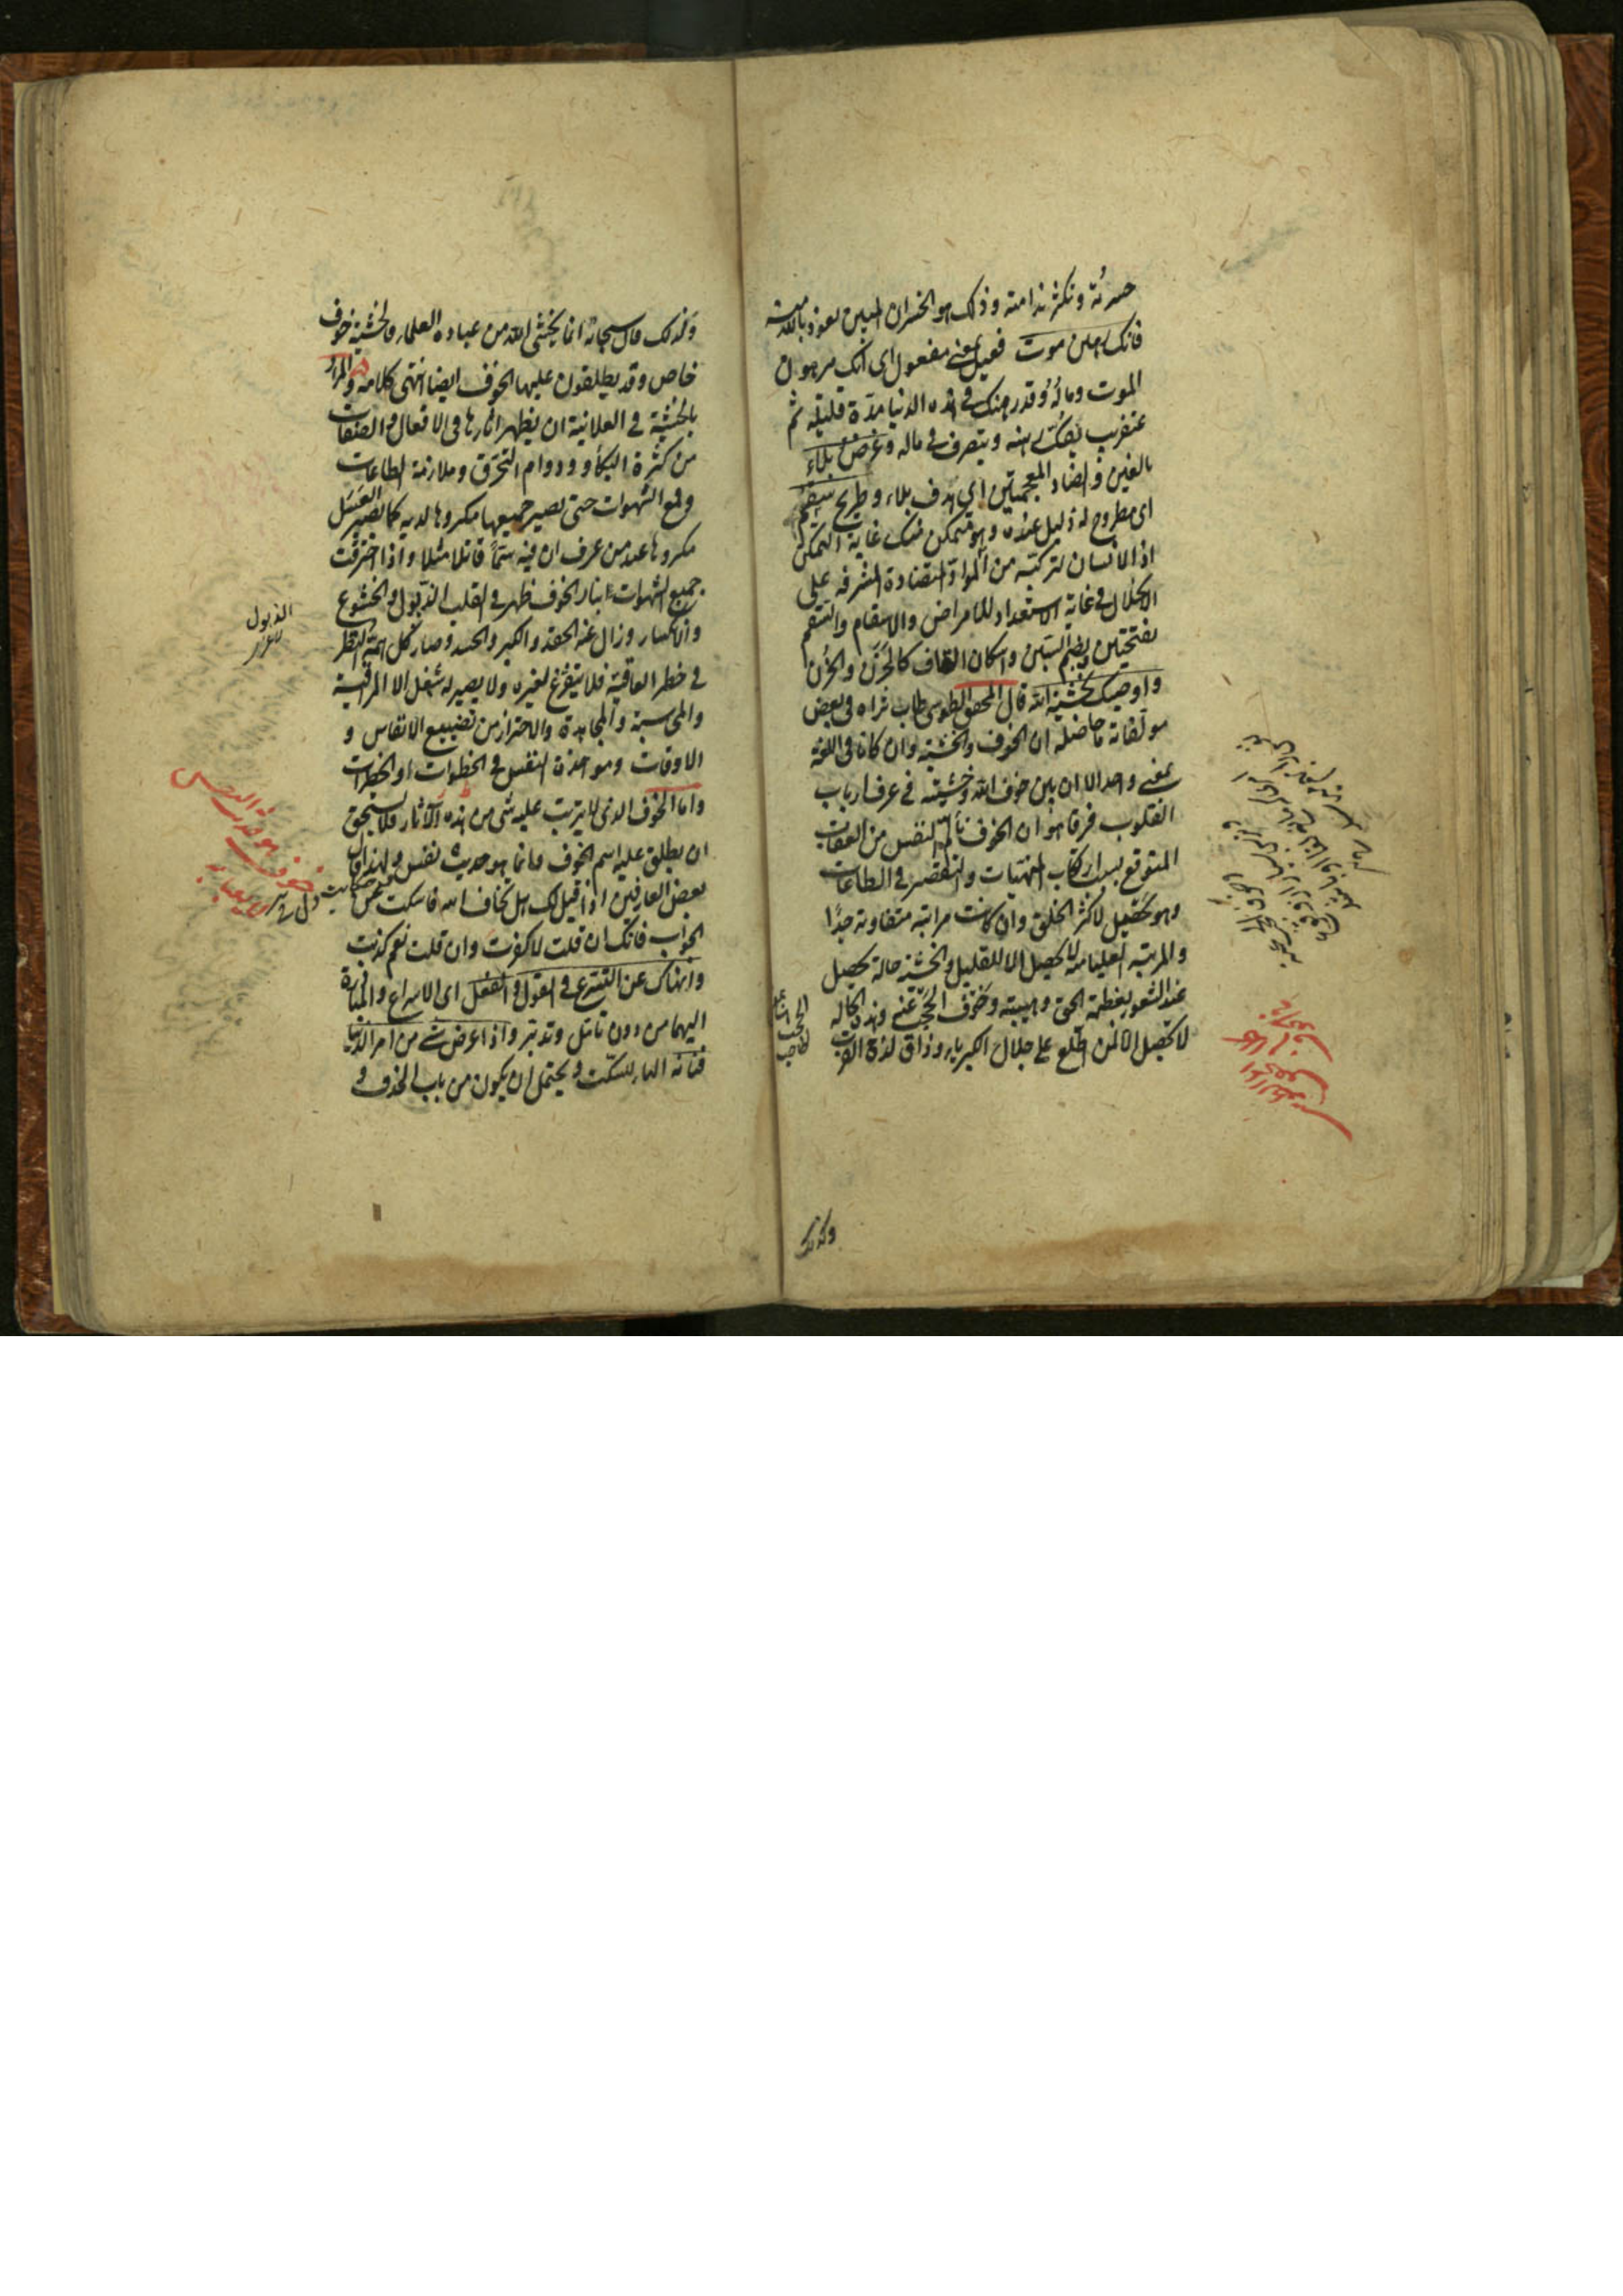 حسرته وتكثر ندامته وذلك هو الخسران المبين نعوذ بالله منه
فانك رهين موت فعيل بمعنى مفعول اى انك مرهون
الموت وماله وقدر هنك فى هذه الدنيا مدة قليلة ثم
عنقريب يفك رهنه ويتصرف فى ماله وغرض بلاء
بالغين والضاد المعجمتين اى هدف بلاء وطريح سقم
اى مطروح له ذليل عنده وهو متمكن منك غاية التمكن
اذ الانسان لتركبه من المواد المتضادة المشرفه على
الانحلال فى غاية الاستعداد للامراض والاسقام والسقم
بفتحتين وبضم السين واسكان القاف كالحزن والحزن
واوصيك بخشية الله قال المحقق الطوسى طاب ثراه فى بعض
مولفاته ما حاصله ان الخوف والخشية وان كانا فى اللغة
بمعنى واحد الا ان بين خوف الله وخشيته فى عرف ارباب
القلوب فرقا هو ان الخوف تألم النفس من العقاب
المتوقع بسبب ارتكاب المنهيات والتقصير فى الطاعات
وهو يحصل لاكثر الخلق وان كانت مراتبه متفاوتة جدا
والمرتبة العليا منه لا تحصل الا للقليل والخشية حالة تحصل
عند الشعور بعظمة الحق وهيبته وخوف الحجب عنه وهذه الحالة
لا تحصل الا لمن اطلع على جلال الكبرياء وذاق لذة القرب
وكذلك
وكذلك قال سبحانه انما يخشى الله من عباده العلماء فالخشية خوف
خاص وقد يطلقون عليها الخوف ايضا انتهى كلامه والمراد
بالخشية فى العلانية ان يظهر اثارها فى الافعال والصفات
من كثرة البكاء ودوام التحرق وملازمة الطاعات
وقمع الشهوات حتى يصير جميعها مكروها لديه كما يصير العسل
مكروها عند من عرف ان فيه سما قاتلا مثلا واذا احترقت
جميع الشهوات بنار الخوف ظهر فى القلب الذبول والخشوع
والانكسار وزال عنه الحقد والكبر والحسد وصار كل همه النظر
فى خطر العاقبة فلا يتفرغ لغيره ولا يصير له شغل الا المراقبة
والمحاسبة والمجاهدة والاحتراز من تضييع الانفاس و
الاوقات ومواخذة النفس فى الخطوات او الخطرات
واما الخوف الذى لا يترتب عليه شى من هذه الآثار فلا يستحق
ان يطلق عليه اسم الخوف وانما هو حديث نفس ولهذا قال
بعض العارفين اذا قيل لك هل تخاف الله فاسكت عن
الجواب فانك ان قلت لا كفرت وان قلت نعم كذبت
وانهاك عن التسرع فى القول والفعل اى الاسراع والمبادرة
اليهما من دون تأمل وتدبر واذا عرض شى من امر الدنيا
فتأنه الهاء للسكت ويحتمل ان يكون من باب الحذف و
الذبول